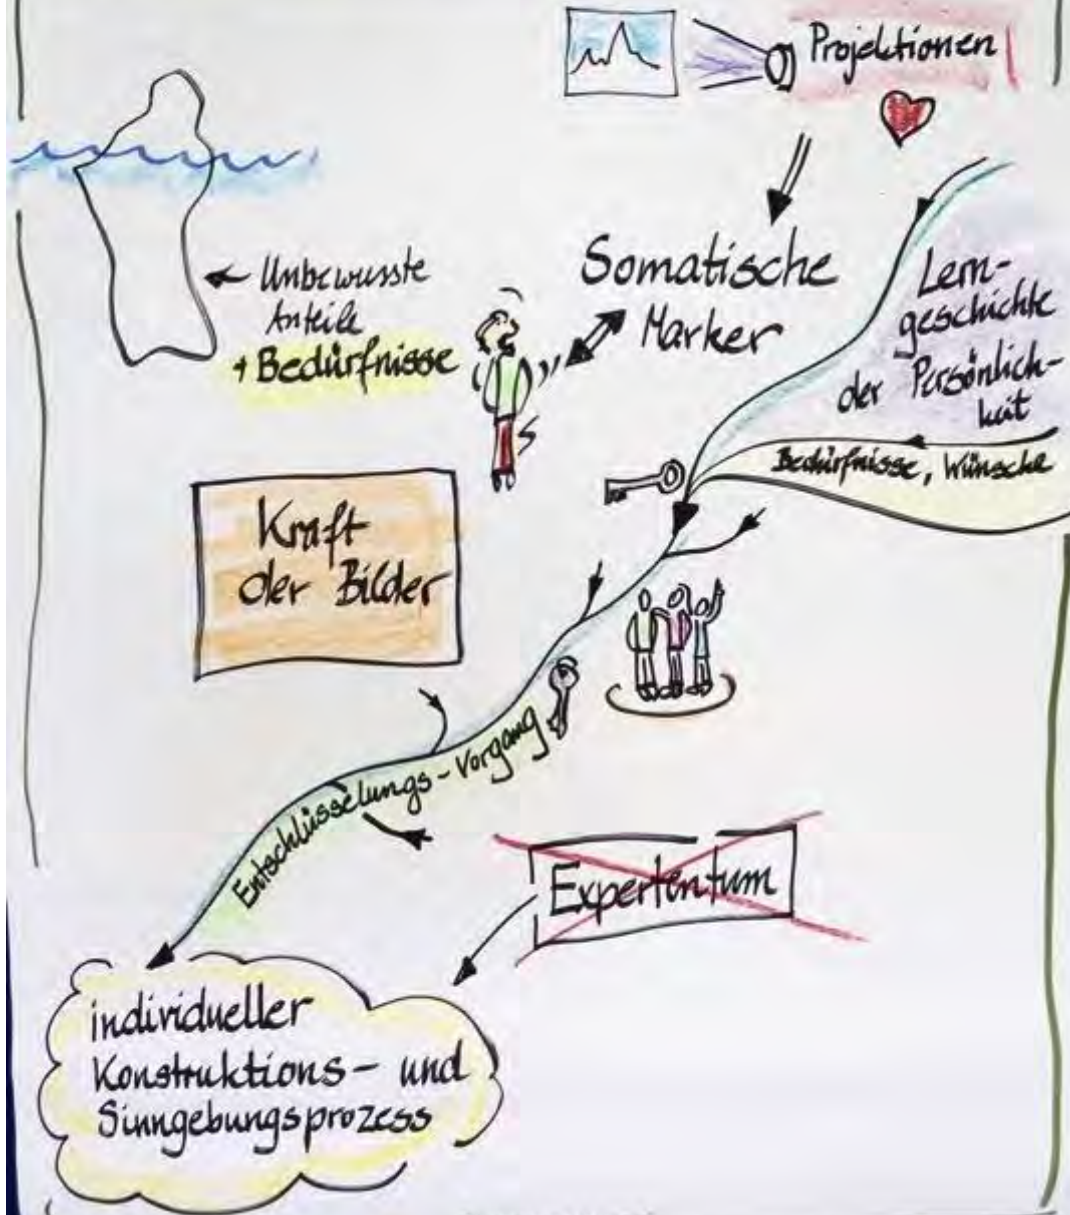 Projektionen
Unbewusste
Anteile
+ Bedürfnisse
Somatische
Marker
Lern-
geschichte
der Persönlich-
keit
Bedürfnisse, Wünsche
Kraft
der Bilder
Entschlüsselungs-Vorgang
Expertentum
individueller
Konstruktions- und
Sinngebungsprozess